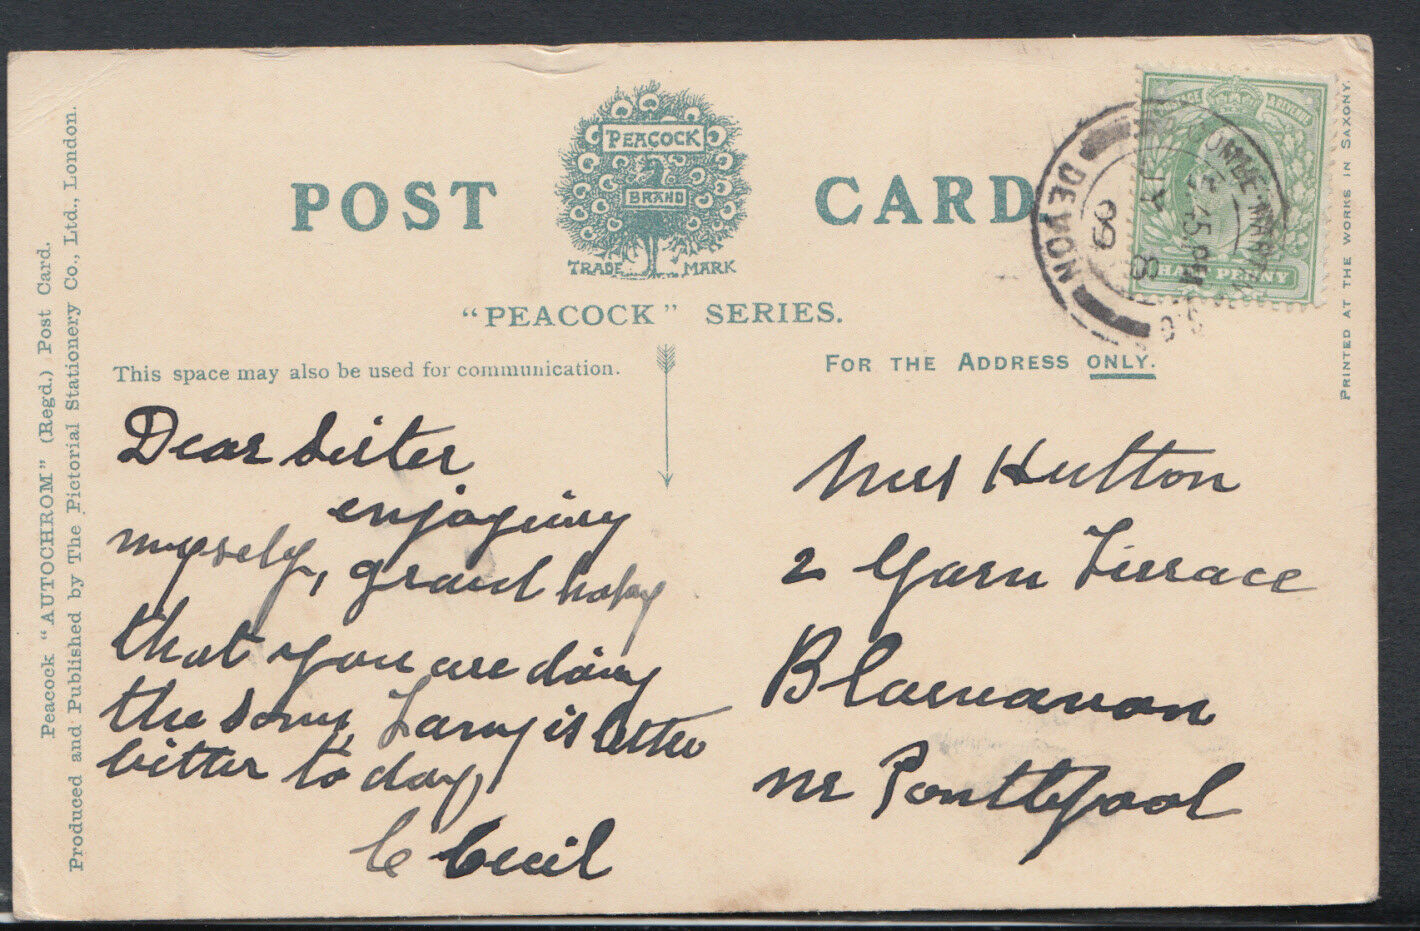 POST CARD
PEACOCK
BRAND
TRADE MARK
"PEACOCK" SERIES.
This space may also be used for communication.
FOR THE ADDRESS ONLY.
Peacock "AUTOCHROM" (Regd.) Post Card.
Produced and Published by The Pictorial Stationery Co., Ltd., London.
PRINTED AT THE WORKS IN SAXONY.
DEVON
45 PM
HALF PENNY
Dear Sister
enjoying
myself, grand
that you are doing
the same, is
better to day
Cecil
Mrs Hutton
2 Garn Terrace
Blaenavon
nr Pontypool